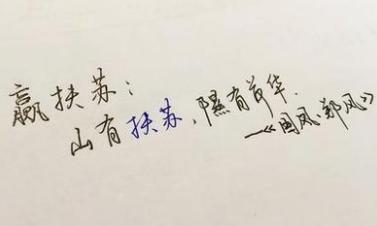 嬴扶苏：
山有扶苏，隰有荷华.
—《国风·郑风》